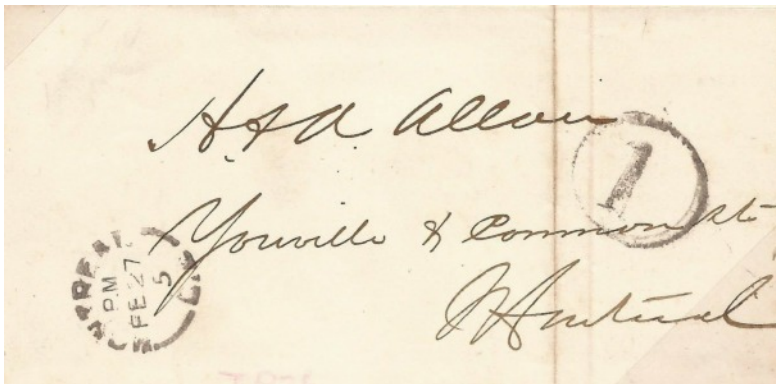 H. & A. Allan
1
Youville & Common sts
Montreal
MONTREAL
PM
FE 27
5